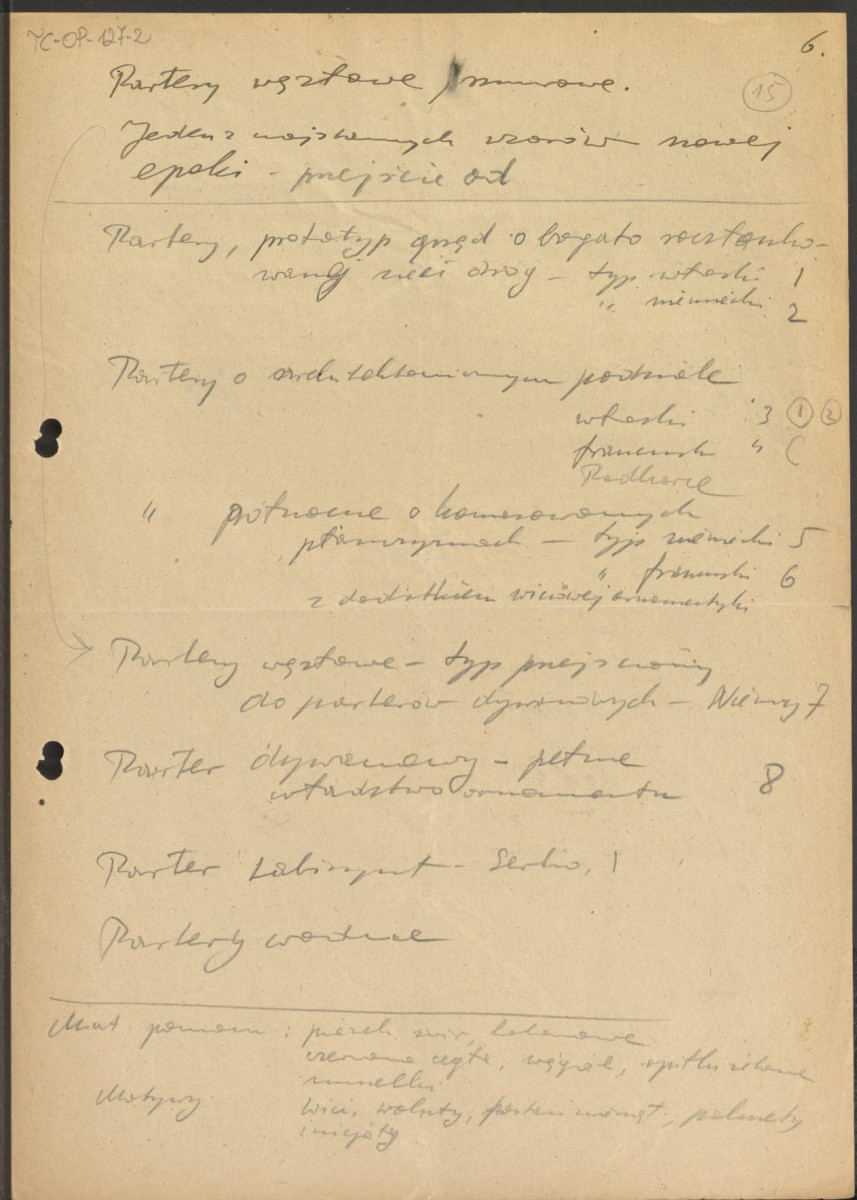 TC-OP-127-2
6.
Partery węzłowe / sznurowe.
15
Jeden z najstarszych wzorów nowej
epoki - przejście od
Partery, prototyp grzęd o bogato rozczłonko-
wanej sieci dróg - typ włoski 1
" niemiecki 2
Partery o architektonicznym podziale
włoski 3 1 2
francuski "
" północne o
- typ niemiecki 5
" francuski 6
z dodatkiem wiciowej ornamentyki
Partery węzłowe - typ przejściowy
do parterów dywanowych - Niemcy 7
Parter dywanowy - pełne
władztwo ornamentu 8
Parter Labirynt - Serlio, 1
Partery wodne
Mat. pomocn : piasek, żwir, kolorowe
czerwona cegła, węgiel, opiłki żelazne
muszelki
Motywy wici, woluty, postaci zwierząt, palmety
inicjały